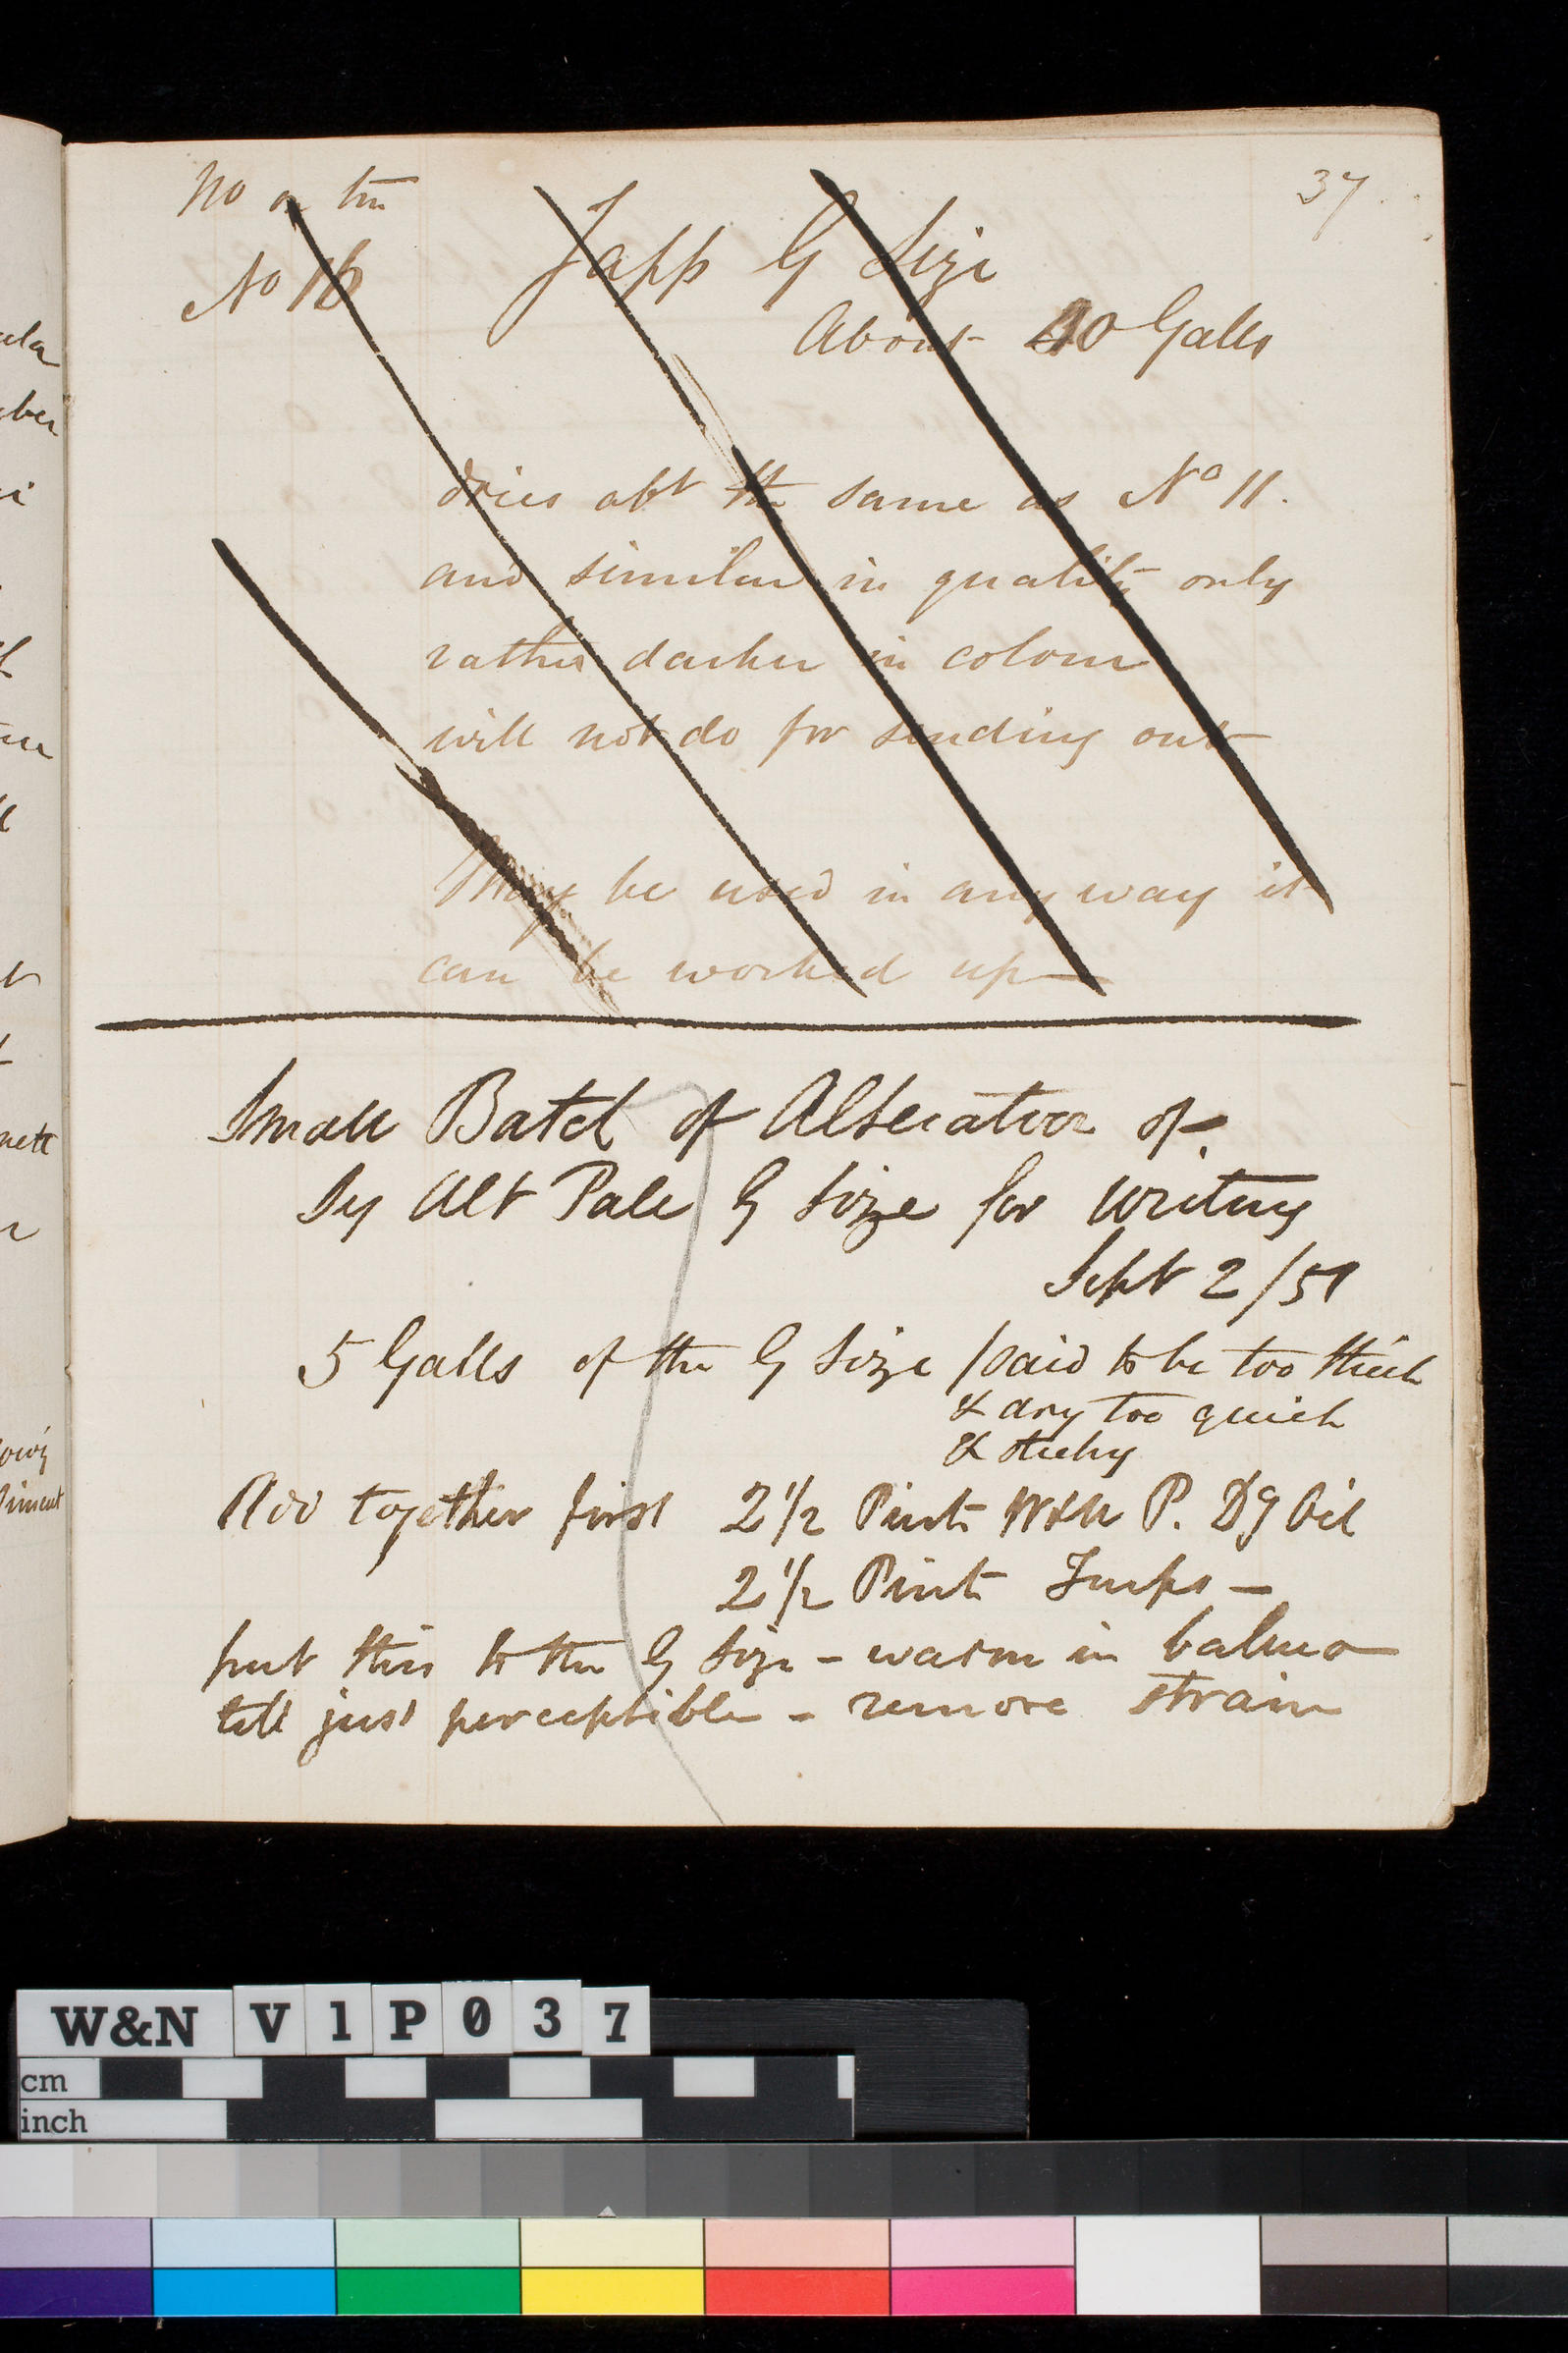 37
No on tin
No 16
Japp G Size
About 40 Galls
dries abt the same as No 11.
and similar in quality only
rather darker in colour
will not do for sending out
May be used in any way it
can be worked up
Small Batch of Alteration of
by Alt Pale G Size for writing
Sept 2/51
5 Galls of the G Size /said to be too thick
& dry too quick
& sticky
Add together first 2 1/2 Pints W&N P. Dg Oil
2 1/2 Pints Turps -
put this to the G Size - warm in balneo
till just perceptible - remove strain
W&N V1P037
cm
inch